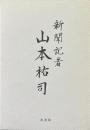 新聞記者
山本祐司